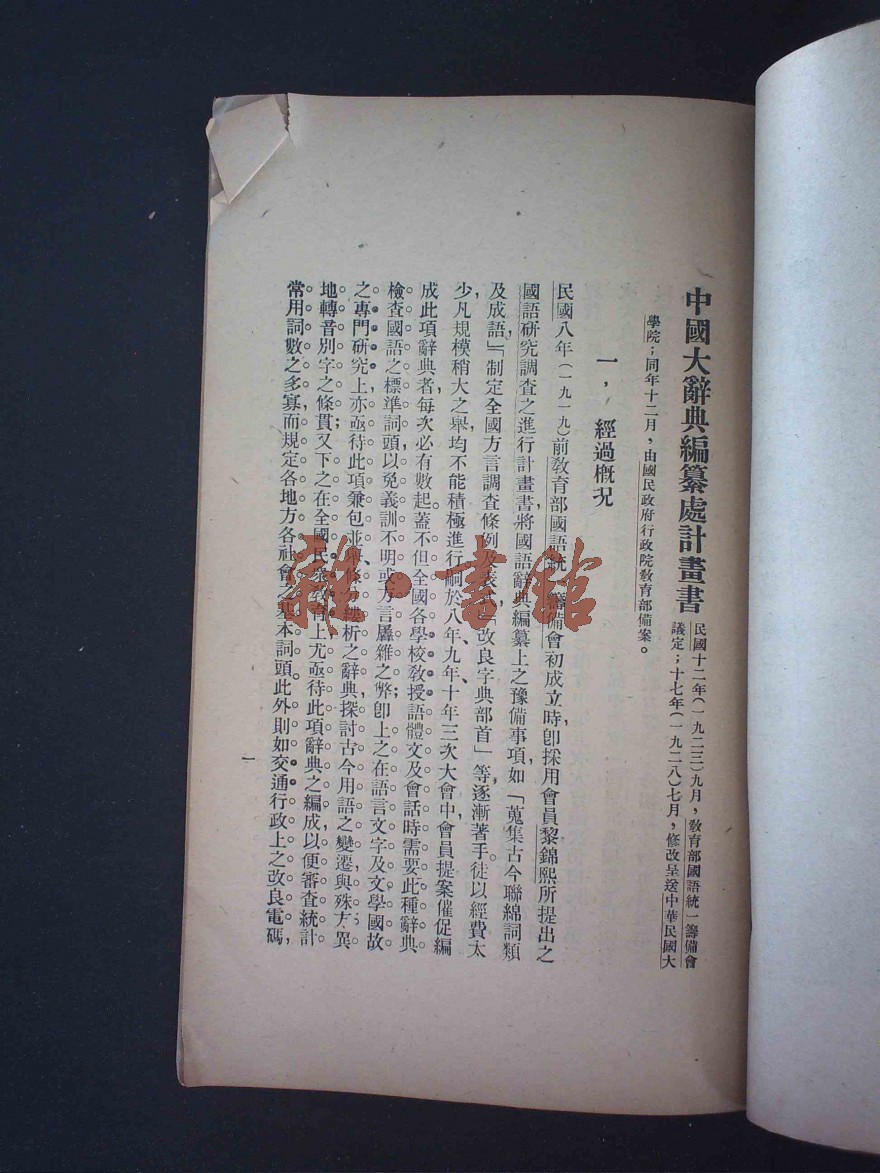 中國大辭典編纂處計畫書
民國十二年(一九二三)九月，敎育部國語統一籌備會
議定；十七年(一九二八)七月，修改呈送中華民國大
學院；同年十二月，由國民政府行政院敎育部備案。
一， 經過槪況
民國八年(一九一九)前敎育部國語統一籌備會初成立時，卽採用會員黎錦熙所提出之
國語硏究調查之進行計畫書，將國語辭典編纂上之豫備事項，如「蒐集古今聯綿詞類
及成語」，「制定全國方言調查條例及表式」，「改良字典部首」等，逐漸著手。徒以經費太
少，凡規模稍大之舉，均不能積極進行。嗣於八年、九年、十年三次大會中，會員提案催促編
成此項辭典者，每次必有數起。蓋不但全國各學校敎授語體文及會話時，需要此種辭典
檢查國語之標準詞頭，以免義訓不明或方言厲雜之弊；卽上之在語言文字及文學國故
之專門硏究上，亦亟待此項兼包並 析之辭典，探討古今用語之變遷與殊方異
地轉音別字之條貫；又下之在全國民衆敎育上，尤亟待此項辭典之編成，以便審查統計
常用詞數之多寡，而規定各地方各社會之基本詞頭。此外則如交通行政上之改良電碼，
一
雜·書館